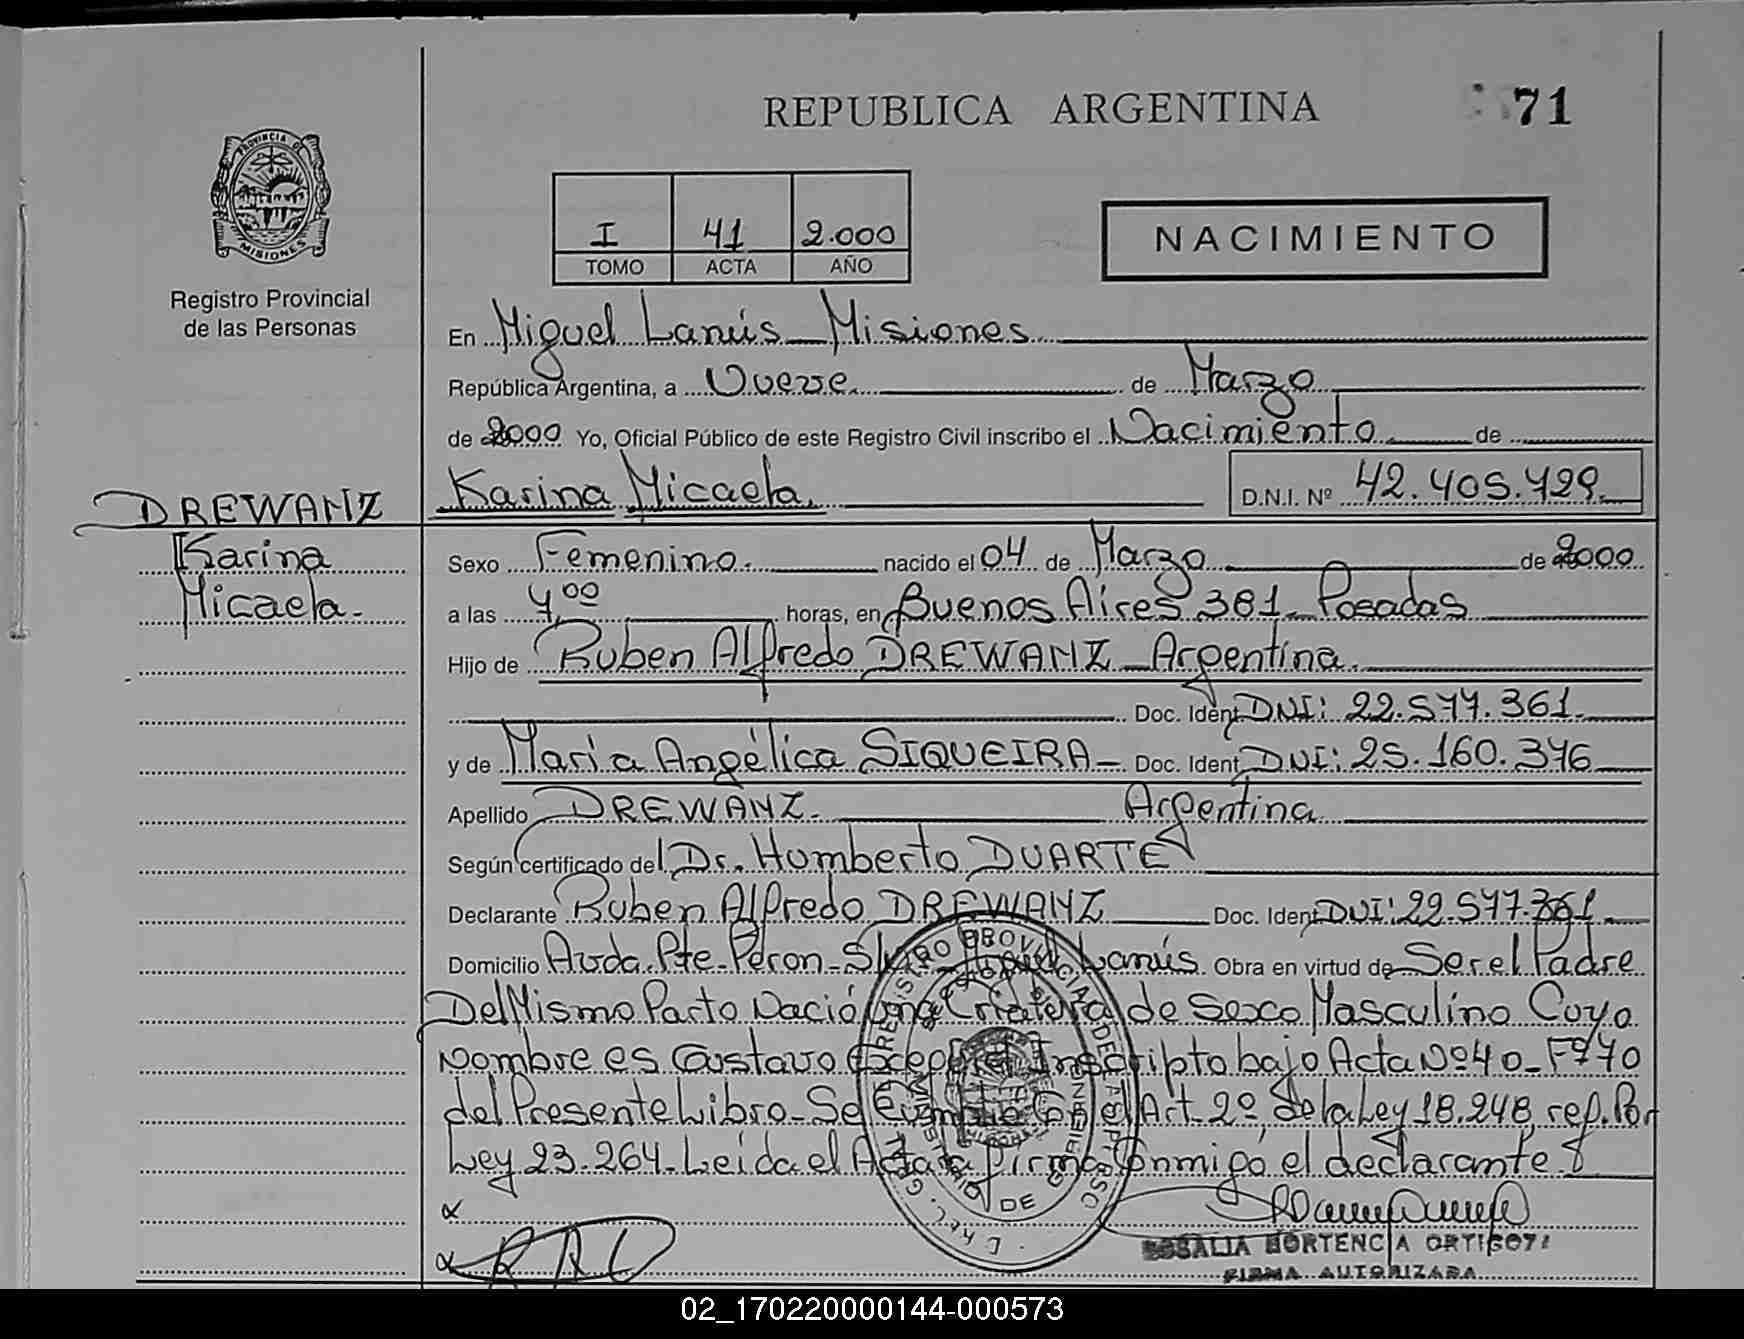 REPUBLICA ARGENTINA
71
PROVINCIA DE
MISIONES
Registro Provincial
de las Personas
I 41 2.000
TOMO ACTA AÑO
NACIMIENTO
En Miguel Lanús - Misiones
República Argentina, a Nueve de Marzo
de 2000 Yo, Oficial Público de este Registro Civil inscribo el Nacimiento de
DREWANZ Karina Micaela. D.N.I. Nº 42.405.429
Karina Sexo Femenino. nacido el 04 de Marzo de 2000
Micaela. a las 4,00 horas, en Buenos Aires 381 - Posadas
Hijo de Ruben Alfredo DREWANZ - Argentina.
Doc. Ident. DNI: 22.577.361.
y de Maria Angélica SIQUEIRA - Doc. Ident. DNI: 25.160.376
Apellido DREWANZ. Argentina
Según certificado del Dr. Humberto DUARTE
Declarante Ruben Alfredo DREWANZ Doc. Ident. DNI: 22.577.361
Domicilio Avda. Pte. Peron - S/Nº Lanús. Obra en virtud de Ser el Padre
Del Mismo Parto Nació una Criatura de Sexo Masculino Cuyo
Nombre es Gustavo Inscripto bajo Acta Nº 40 - Fº 70
del Presente Libro - Se Cumple Con el Art. 2º, de la Ley 18.248, rep. Por
Ley 23.264. Leída el Acta la firma Conmigo el declarante.
ROSALIA HORTENCIA
FIRMA AUTORIZADA
02_170220000144-000573